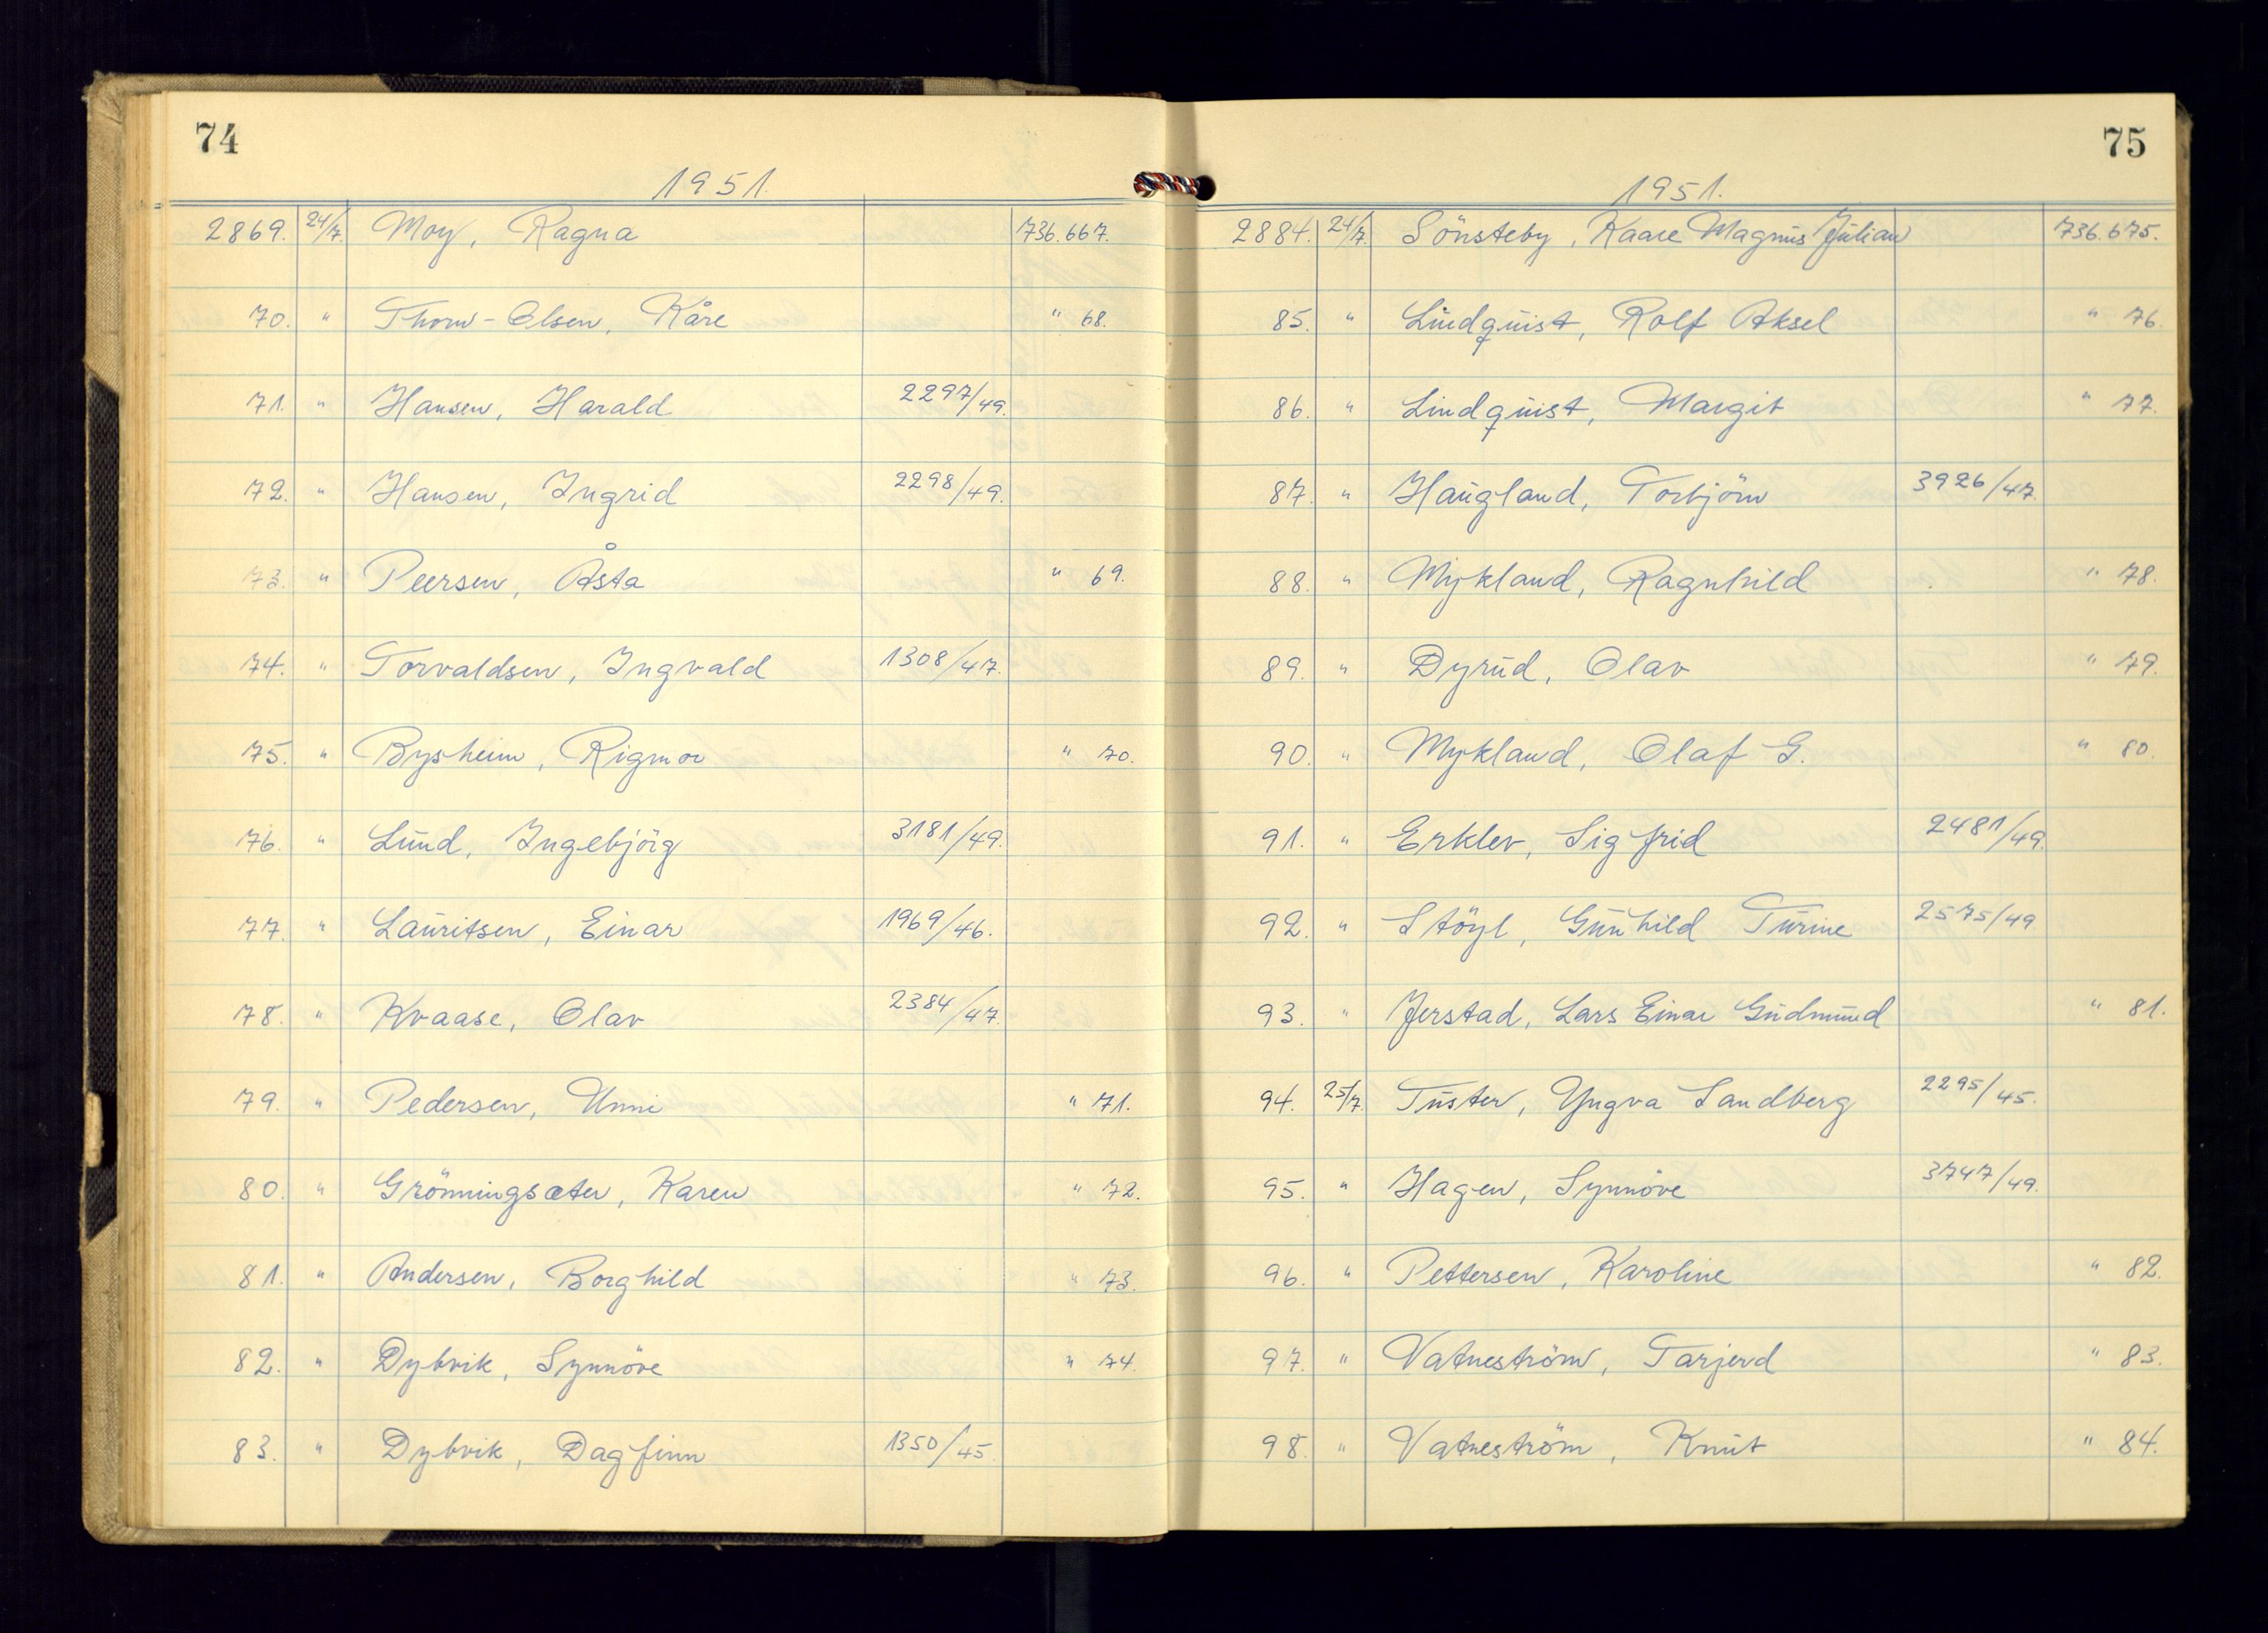 74
1951.
2869. 24/7. Moy, Ragna 736.667.
70. " Thom-Olsen, Kåre " 68.
71. " Hansen, Harald 2297/49.
72. " Hansen, Ingrid 2298/49.
73. " Peersen, Åsta " 69.
74. " Torvaldsen, Ingvald 1308/47.
75. " Bysheim, Rigmor " 70.
76. " Lund, Ingebjörg 3181/49.
77. " Lauritsen, Einar 1969/46.
78. " Kvaase, Olav 2384/47.
79. " Pedersen, Unni " 71.
80. " Grönningsæter, Karen " 72.
81. " Andersen, Borghild " 73.
82. " Dybvik, Synnöve " 74.
83. " Dybvik, Dagfinn 1350/45.
75
1951.
2884. 24/7. Sönsteby, Kaare Magnus Julian 736.675.
85. " Lindquist, Rolf Aksel " 76.
86. " Lindquist, Margit " 77.
87. " Haugland, Torbjörn 3926/47.
88. " Mykland, Ragnhild " 78.
89. " Dyrud, Olav " 79.
90. " Mykland, Olaf G. " 80.
91. " Erklev, Sigfrid 2481/49.
92. " Stöyl, Gunhild Turine 2575/49
93. " Jerstad, Lars Einar Gudmund " 81.
94. 25/7. Tuster, Yngva Sandberg 2295/45.
95. " Hagen, Synnöve 3747/49.
96. " Pettersen, Karoline " 82.
97. " Vatneström, Tarjerd " 83.
98. " Vatneström, Knut " 84.